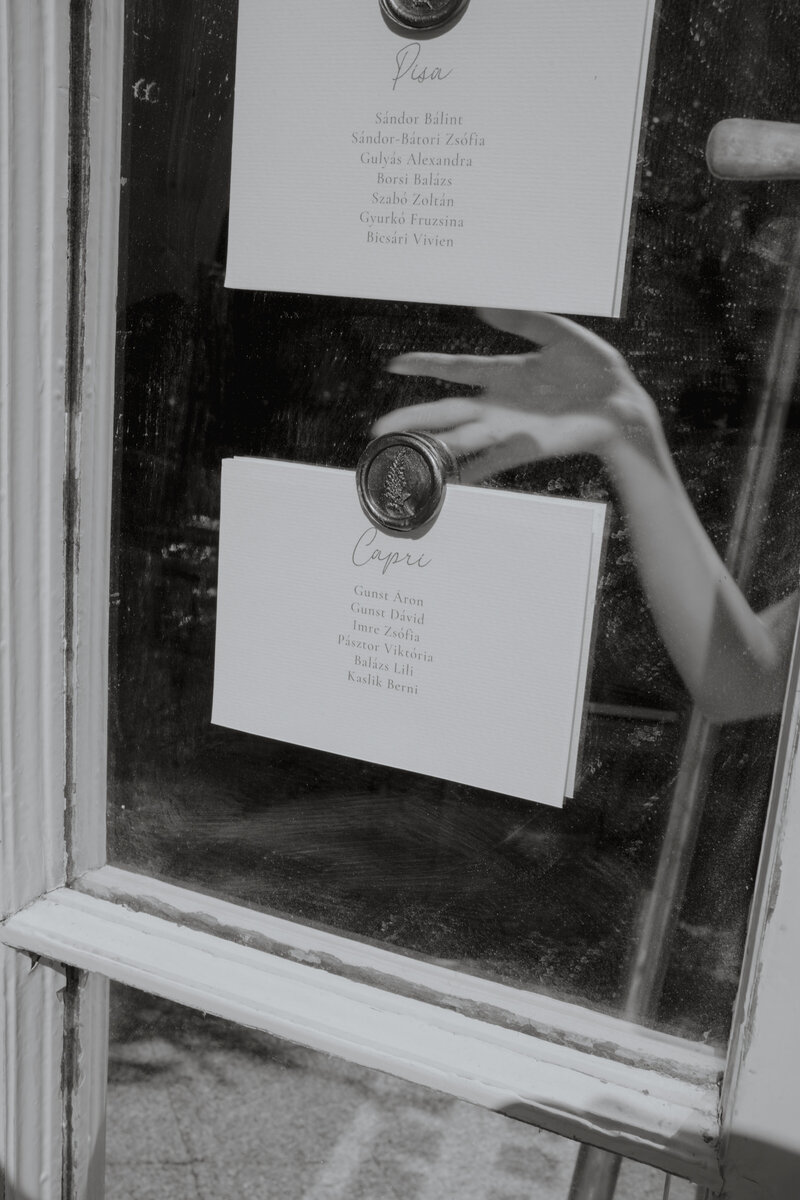 Pisa
Sándor Bálint
Sándor-Bátori Zsófia
Gulyás Alexandra
Borsi Balázs
Szabó Zoltán
Gyurkó Fruzsina
Bicsári Vivien
Capri
Gunst Áron
Gunst Dávid
Imre Zsófia
Pásztor Viktória
Balázs Lili
Kaslik Berni